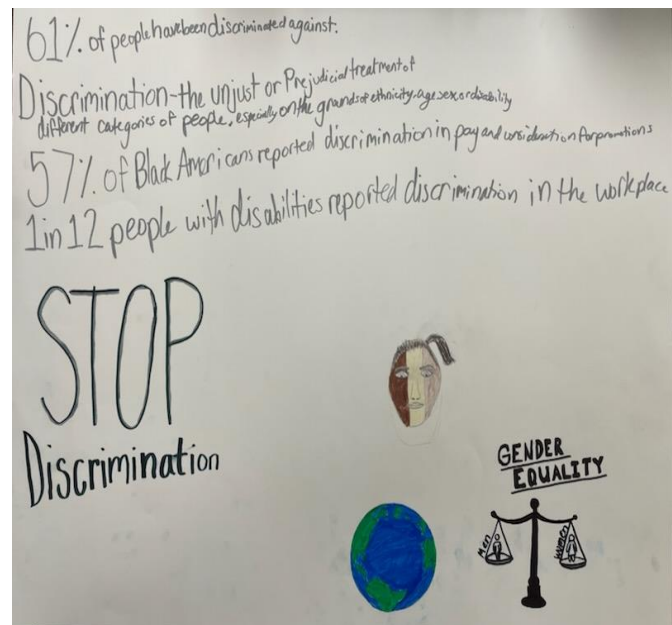 61% of people have been discriminated against.
Discrimination-the unjust or Prejudicial treatment of
different categories of people, especially on the grounds of ethnicity, age, sex, or disability
57% of Black Americans reported discrimination in pay and consideration for promotions
1 in 12 people with disabilities reported discrimination in the workplace
STOP
Discrimination
GENDER
EQUALITY
Men
Women